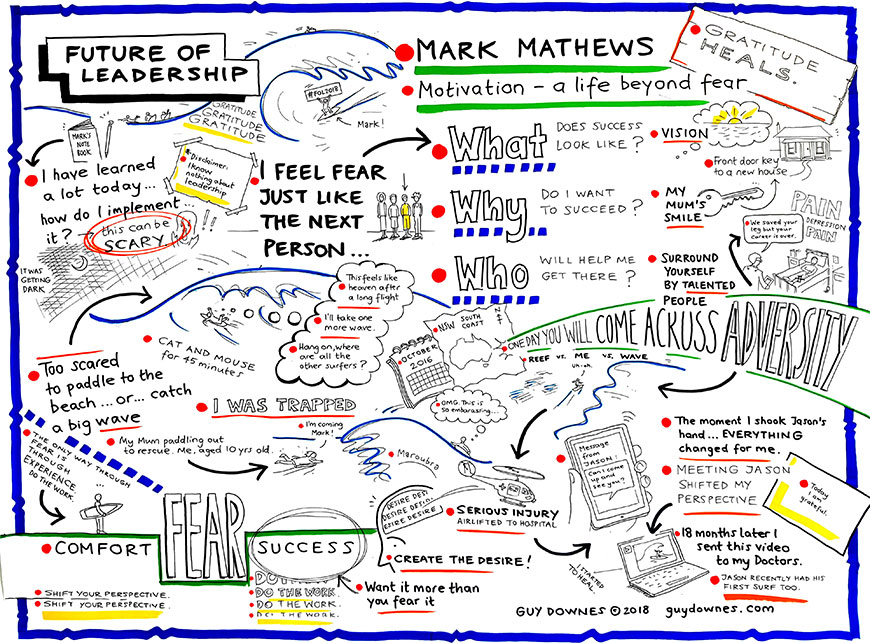 FUTURE OF
LEADERSHIP
MARK MATHEWS
Motivation – a life beyond fear
GRATITUDE
HEALS.
#FOLD018
Mark!
GRATITUDE
GRATITUDE
GRATITUDE
MARK'S
NOTE
BOOK
I have learned
a lot today...
how do I implement...
it?
this can be
SCARY
Disclaimer:
I know
nothing about
leadership
I FEEL FEAR
JUST LIKE
THE NEXT
PERSON...
What
DOES SUCCESS
LOOK LIKE?
VISION
Front door key
to a new house
Why
DO I WANT
TO SUCCEED?
MY
MUM'S
SMILE
PAIN
DEPRESSION
PAIN
We saved your
leg but your
career is over.
Who
WILL HELP ME
GET THERE?
SURROUND
YOURSELF
BY TALENTED
PEOPLE
IT WAS
GETTING
DARK
This feels like
heaven after
a long flight
I'll take one
more wave.
Hang on, where
are all the
other surfers?
NSW SOUTH
COAST
N
OCTOBER
2016
ONE DAY YOU WILL COME ACRUSS ADVERSITY
REEF vs. ME vs. WAVE
uh-oh
OMG. This is
so embarasing...
CAT AND MOUSE
for 45 minutes
Too scared
to paddle to the
beach ... or ... catch
a big wave
I WAS TRAPPED
I'm coming
Mark!
My Mum paddling out
to rescue. Me, aged 10 yrs old.
Maroubra
THE ONLY WAY THROUGH
FEAR IS
THROUGH
EXPERIENCE
DO THE WORK.
COMFORT
FEAR
SUCCESS
SHIFT YOUR PERSPECTIVE.
SHIFT YOUR PERSPECTIVE.
DO THE WORK.
DO THE WORK.
DO THE WORK.
DESIRE
DESIRE
DESIRE DESIRE
CREATE THE DESIRE!
Want it more than
you fear it
SERIOUS INJURY
AIRLIFTED TO HOSPITAL
Message
from
JASON:
Can I come
up and
see you?
The moment I shook Jason's
hand... EVERYTHING
changed for me.
MEETING JASON
SHIFTED MY
PERSPECTIVE
Today
I am
grateful.
I STARTED
TO HEAL
18 months later I
sent this video
to my Doctors.
JASON RECENTLY HAD HIS
FIRST SURF TOO.
GUY DOWNES © 2018 guydownes.com